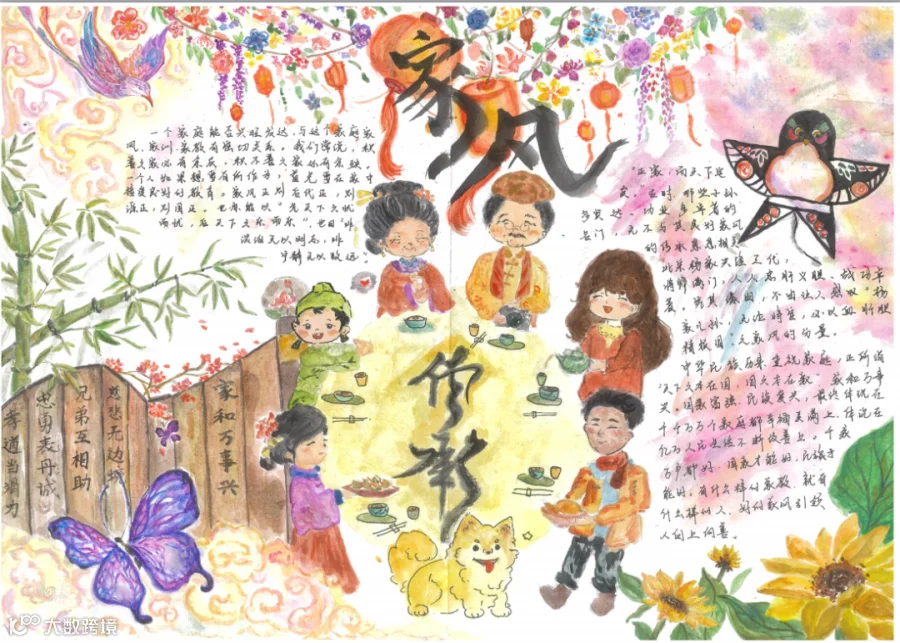 家风
一个家庭能否兴旺发达,与这个家庭家
风、家训、家教有密切关系。我们常说,积
善之家必有余庆,积不善之家必有余殃。
一个人如果想事有所作为,首先要在家中
接受良好的教育。家风正则
正,则国正。"先天下之忧
而忧,后天下之乐而乐"也曰"非
淡泊无以明志,非
宁静无以致远。"
"正家,而天下定
矣"古时,那些子孙
多贤达、功业多卓著的
名门,无不与其良好家风
的传承息息相关
北宋杨家兴隆三代,
将帅满门,人人忠肝义胆、战功卓
著。究其缘由,不由让人感叹"杨
家儿孙,无论将宰,必以血 肝胆
精报国。"家风的份量。
中华民族历来重视家庭,正所谓
"天下之本在国,国之本在家"家和万事
兴。国家富强,民族复兴,最终体现在
千千万万个家庭都幸福美满上,体现在
亿万人民生活不断改善上。千家
万户都好,国家才能好,民族才
能好。有什么样的家教,就有
什么样的人。好的家风引领
人向上向善。
传承
孝道当竭力
忠勇表丹城
兄弟互相助
慈悲无边境
家和万事兴
大数跨境